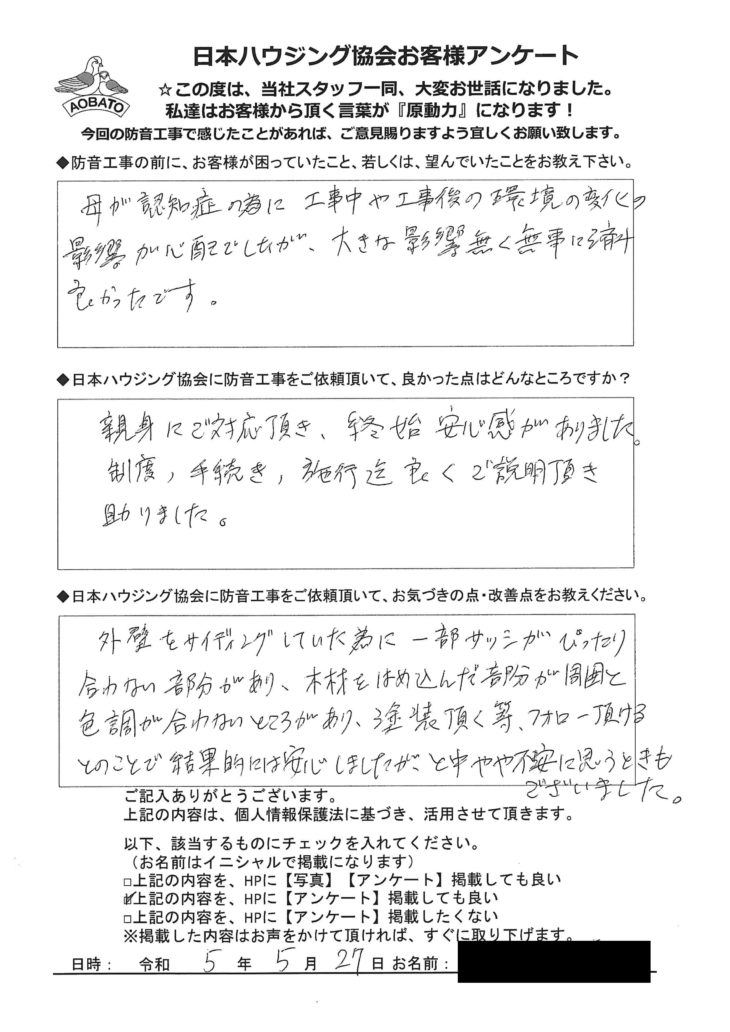 日本ハウジング協会お客様アンケート
AOBATO
☆この度は、当社スタッフ一同、大変お世話になりました。
私達はお客様から頂く言葉が『原動力』になります！
今回の防音工事で感じたことがあれば、ご意見賜りますよう宜しくお願い致します。
◆防音工事の前に、お客様が困っていたこと、若しくは、望んでいたことをお教え下さい。
母が認知症の為に工事中や工事後の環境の変化の
影響が心配でしたが、大きな影響無く無事に済み
良かったです。
◆日本ハウジング協会に防音工事をご依頼頂いて、良かった点はどんなところですか？
親身にご対応頂き、終始安心感がありました。
制度，手続き，施行迄良くご説明頂き
助りました。
◆日本ハウジング協会に防音工事をご依頼頂いて、お気づきの点・改善点をお教えください。
外壁をサイディングしていた為に一部サッシがぴったり
合わない部分があり、木材をはめ込んだ部分が周囲と
色調が合わないところがあり、塗装頂く等、フォロー頂ける
とのことで結果的には安心しましたが、と中やや不安に思うときも
ございました。
ご記入ありがとうございます。
上記の内容は、個人情報保護法に基づき、活用させて頂きます。
以下、該当するものにチェックを入れてください。
（お名前はイニシャルで掲載になります）
□上記の内容を、HPに【写真】【アンケート】掲載しても良い
☑上記の内容を、HPに【アンケート】掲載しても良い
□上記の内容を、HPに【アンケート】掲載したくない
※掲載した内容はお声をかけて頂ければ、すぐに取り下げます。
日時： 令和 5 年 5 月 27 日 お名前：